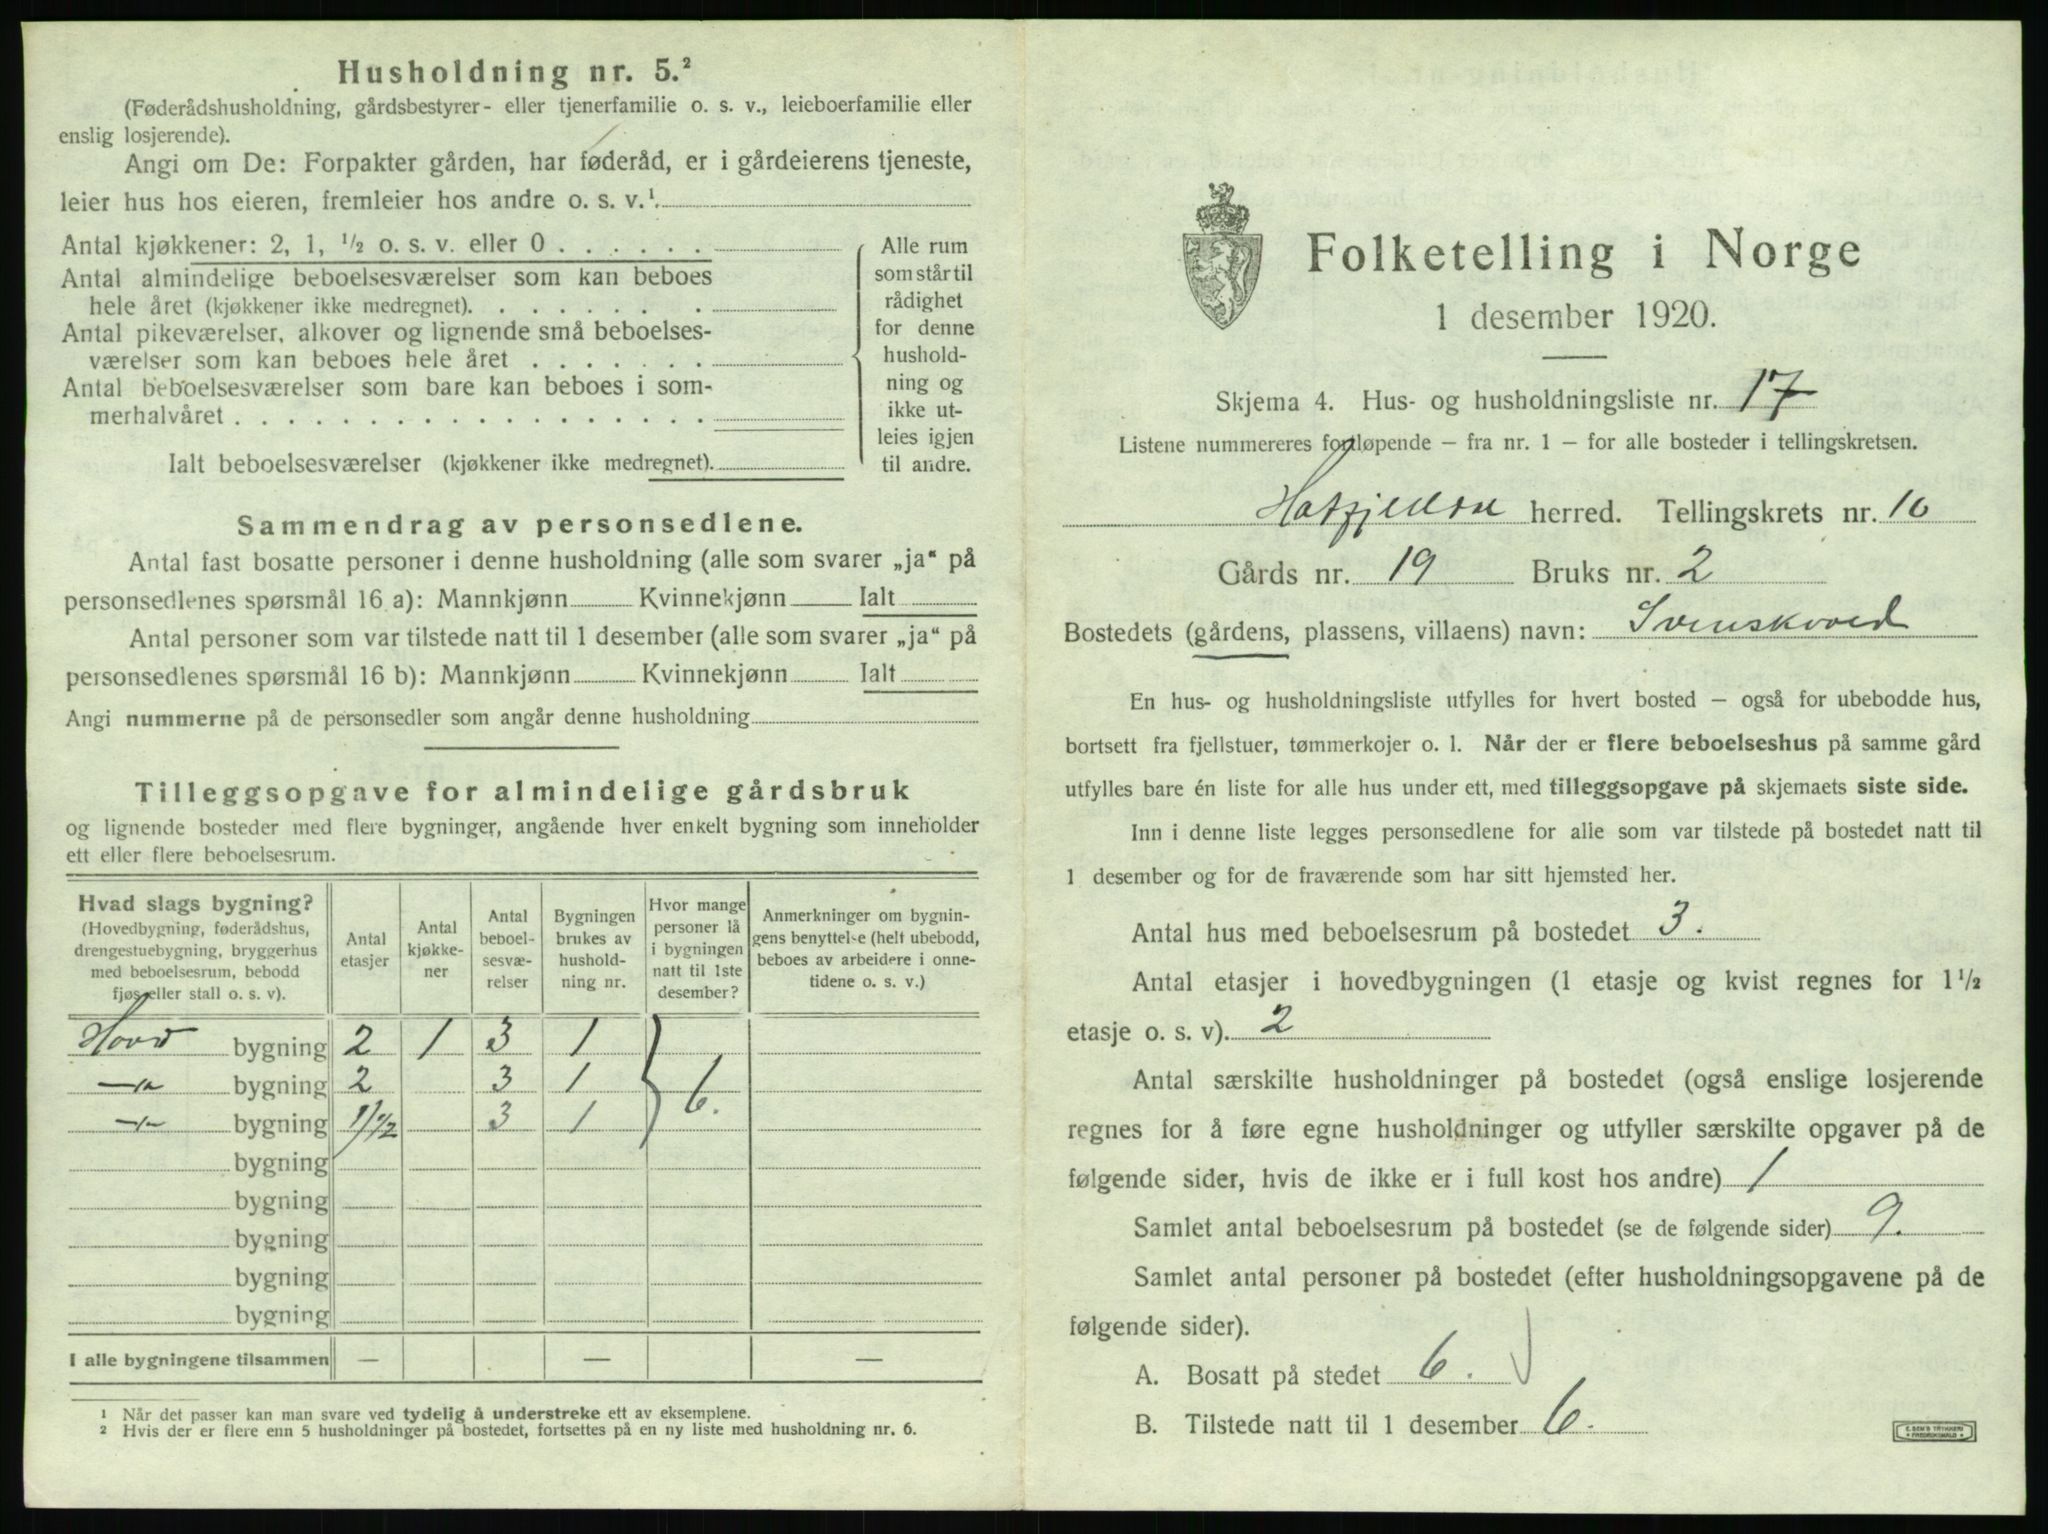 Husholdning nr. 5.²
(Føderådshusholdning, gårdsbestyrer- eller tjenerfamilie o. s. v., leieboerfamilie eller
enslig losjerende).
Angi om De: Forpakter gården, har føderåd, er i gårdeierens tjeneste,
leier hus hos eieren, fremleier hos andre o. s. v.¹
Antal kjøkkener: 2, 1, ½ o. s. v. eller 0 . . . . . .
Antal almindelige beboelsesværelser som kan beboes
hele året (kjøkkener ikke medregnet). . . . . . . .
Antal pikeværelser, alkover og lignende små beboelses-
værelser som kan beboes hele året . . . . . . .
Antal beboelsesværelser som bare kan beboes i som-
merhalvåret . . . . . . . . . . . . . . . . . .
Ialt beboelsesværelser (kjøkkener ikke medregnet).
Alle rum
som står til
rådighet
for denne
hushold-
ning og
ikke ut-
leies igjen
til andre.
Sammendrag av personsedlene.
Antal fast bosatte personer i denne husholdning (alle som svarer „ja“ på
personsedlenes spørsmål 16 a): Mannkjønn Kvinnekjønn Ialt
Antal personer som var tilstede natt til 1 desember (alle som svarer „ja“ på
personsedlenes spørsmål 16 b): Mannkjønn Kvinnekjønn Ialt
Angi nummerne på de personsedler som angår denne husholdning
Tilleggsopgave for almindelige gårdsbruk
og lignende bosteder med flere bygninger, angående hver enkelt bygning som inneholder
ett eller flere beboelsesrum.
Hvad slags bygning?
(Hovedbygning, føderådshus,
drengestuebygning, bryggerhus
med beboelsesrum, bebodd
fjøs eller stall o. s. v).
Antal
etasjer
Antal
kjøkke-
ner
Antal
beboel-
sesvæ-
relser
Bygningen
brukes av
hushold-
ning nr.
Hvor mange
personer lå
i bygningen
natt til 1ste
desember?
Anmerkninger om bygnin-
gens benyttelse (helt ubebodd,
beboes av arbeidere i onne-
tidene o. s. v.)
Hoved bygning 2 1 3 1
—〃— bygning 2 3 1 6.
—〃— bygning 1 1/2 3 1
bygning
bygning
bygning
bygning
bygning
I alle bygningene tilsammen — — —
¹ Når det passer kan man svare ved tydelig å understreke ett av eksemplene.
² Hvis der er flere enn 5 husholdninger på bostedet, fortsettes på en ny liste med husholdning nr. 6.
Folketelling i Norge
1 desember 1920.
Skjema 4. Hus- og husholdningsliste nr. 17
Listene nummereres fortløpende — fra nr. 1 — for alle bosteder i tellingskretsen.
Hatfjelldal herred. Tellingskrets nr. 10
Gårds nr. 19 Bruks nr. 2
Bostedets (gårdens, plassens, villaens) navn: Svenskvold
En hus- og husholdningsliste utfylles for hvert bosted — også for ubebodde hus,
bortsett fra fjellstuer, tømmerkojer o. l. Når der er flere beboelseshus på samme gård
utfylles bare én liste for alle hus under ett, med tilleggsopgave på skjemaets siste side.
Inn i denne liste legges personsedlene for alle som var tilstede på bostedet natt til
1 desember og for de fraværende som har sitt hjemsted her.
Antal hus med beboelsesrum på bostedet 3.
Antal etasjer i hovedbygningen (1 etasje og kvist regnes for 1½
etasje o. s. v). 2
Antal særskilte husholdninger på bostedet (også enslige losjerende
regnes for å føre egne husholdninger og utfyller særskilte opgaver på de
følgende sider, hvis de ikke er i full kost hos andre) 1
Samlet antal beboelsesrum på bostedet (se de følgende sider) 9.
Samlet antal personer på bostedet (efter husholdningsopgavene på de
følgende sider).
A. Bosatt på stedet 6.
B. Tilstede natt til 1 desember 6.